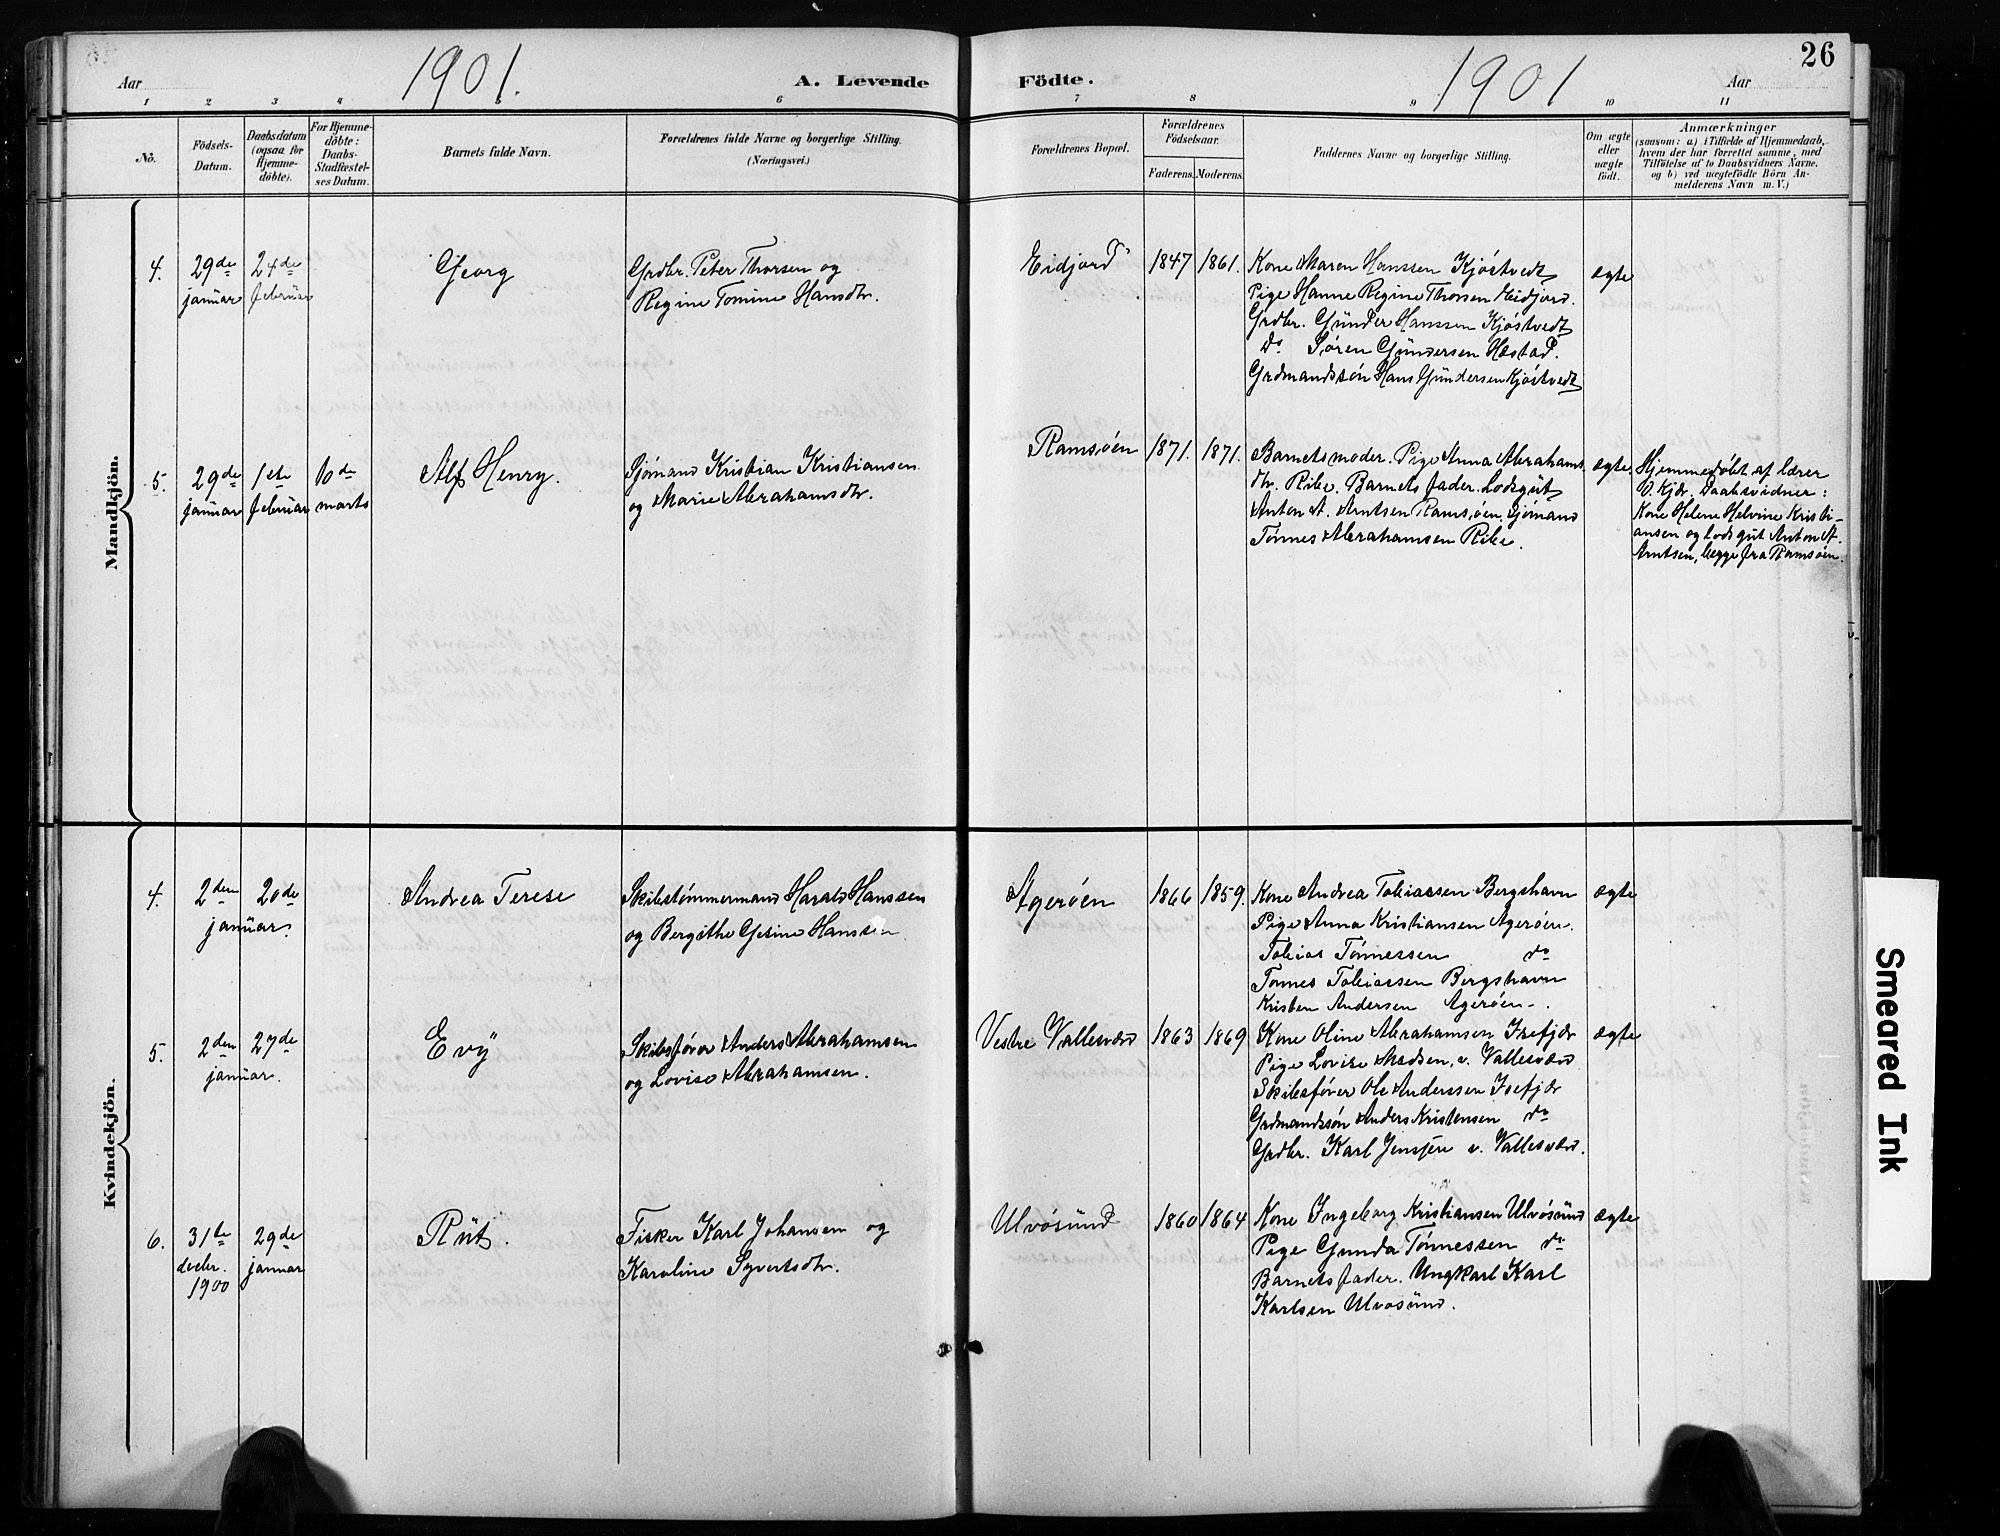 26
Aar 1901. A. Levende Födte. 1901 Aar
1 2 3 4 5 6 7 8 9 10 11
No.
Födsels-
Datum.
Daabsdatum
(ogsaa for
Hjemme-
döbte).
For Hjemme-
döbte:
Daabs-
Stadfæstel-
ses Datum.
Barnets fulde Navn.
Forældrenes fulde Navne og borgerlige Stilling.
(Næringsvei.)
Forældrenes Bopæl.
Forældrenes
Födselsaar.
Faderens. Moderens.
Faddernes Navne og borgerlige Stilling.
Om ægte
eller
uægte
födt.
Anmærkninger
(saasom: a) i Tilfælde af Hjemmedaab,
hvem der har forrettet samme, med
Tilföielse af to Daabsvidners Navne,
og b) ved uægtefödte Börn An-
melderens Navn m. V.)
Mandkjön.
4.
29de
januar
24de
februar
Georg
Grdbr. Peter Thorsen og
Regine Tomine Hansdtr.
Eidjord
1847 1861.
Kone Maren Hanssen Kjøstvedt
Pige Hanne Regine Thorsen Eidjord.
Grdbr. Gunder Hanssen Kjøstvedt
Do Søren Gundersen Hæstad.
Grdmandssøn Hans Gundersen Kjøstvedt
ægte
5.
29de
januar
1ste
februar
10de
marts
Alf Henry.
Sjømand Kristian Kristiansen
og Marie Abrahamsdtr.
Ramsøen
1871. 1871.
Barnets moder. Pige Anna Abrahams
dtr. Ribe. Barnets fader. Lodsgut
Anton A. Arntsen Ramsøen. Sjømand
Tønnes Abrahamsen Ribe.
ægte
Hjemmedøbt af lærer
O. Kjær. Daabsvidner:
Kone Helene Helvine Kristi-
ansen og Lodsgut Anton A.
Arntsen, begge fra Ramsøen.
Kvindekjön.
4.
2den
januar.
20de
Andrea Terese
Skibstømmermand Harald Hanssen
og Bergithe Gesine Hanssen
Agerøen
1866 1859.
Kone Andrea Tobiassen Bergshavn
Pige Anna Kristiansen Agerøen.
Tobias Tønnessen do
Tønnes Tobiassen Bergshavn
Kristen Andersen Agerøen.
ægte
5.
2den
januar.
27de
Evy
Skibsfører Anders Abrahamsen
og Lovise Abrahamsen.
Vestre Vallesværd
1863 1869
Kone Oline Abrahamsen Isefjær
Pige Lovise Madsen, v. Vallesværd
Skibsfører Ole Anderssen Isefjær
Grdmandssøn Anders Kristensen do
Grdbr. Karl Jenssen v. Vallesværd.
ægte
6.
31te
decbr.
1900
29de
januar
Rut.
Fisker Karl Johansen og
Karoline Syvertsdtr.
Ulvøsund
1860 1864
Kone Ingeborg Kristiansen Ulvøsund
Pige Gunda Tønnessen do
Barnets fader. Ungkarl Karl
Karlsen Ulvøsund.
ægte
Smeared Ink